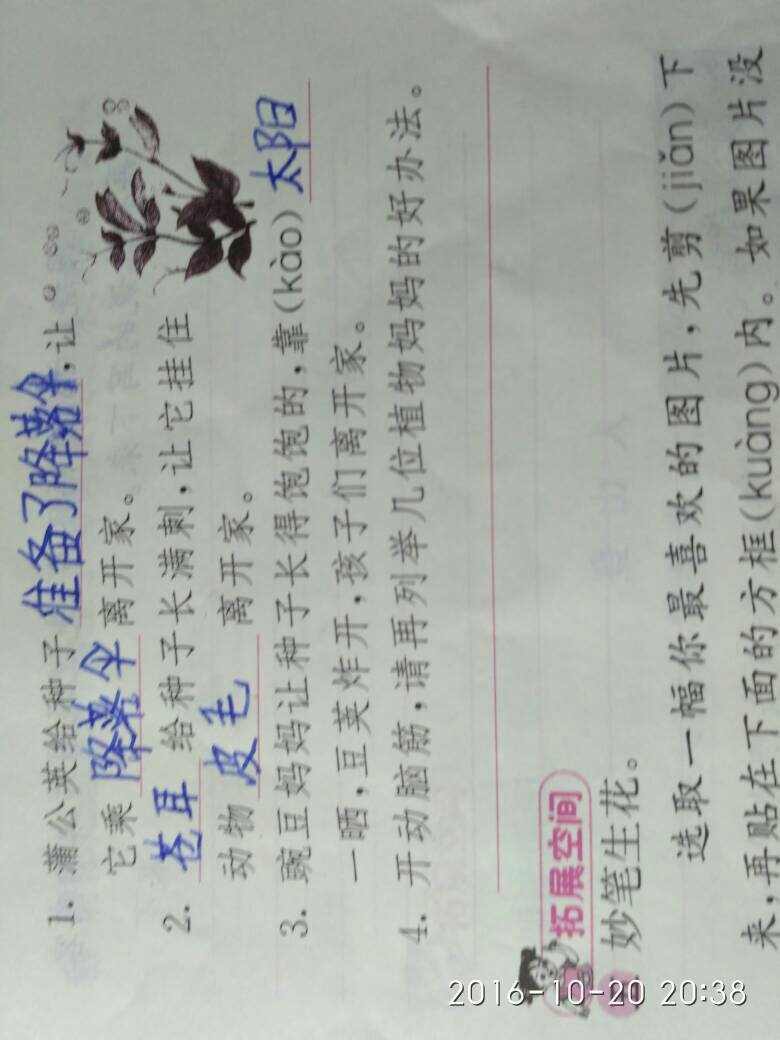 1. 蒲公英给种子准备了降落伞,让
它乘降落伞离开家。
2. 苍耳给种子长满刺,让它挂住
动物皮毛离开家。
3. 豌豆妈妈让种子长得饱饱的,靠(kào)太阳
一晒,豆荚炸开,孩子们离开家。
4. 开动脑筋,请再列举几位植物妈妈的好办法。
拓展空间
妙笔生花。
选取一幅你最喜欢的图片,先剪(jiǎn)下
来,再贴在下面的方框(kuàng)内。如果图片没
2016-10-20 20:38